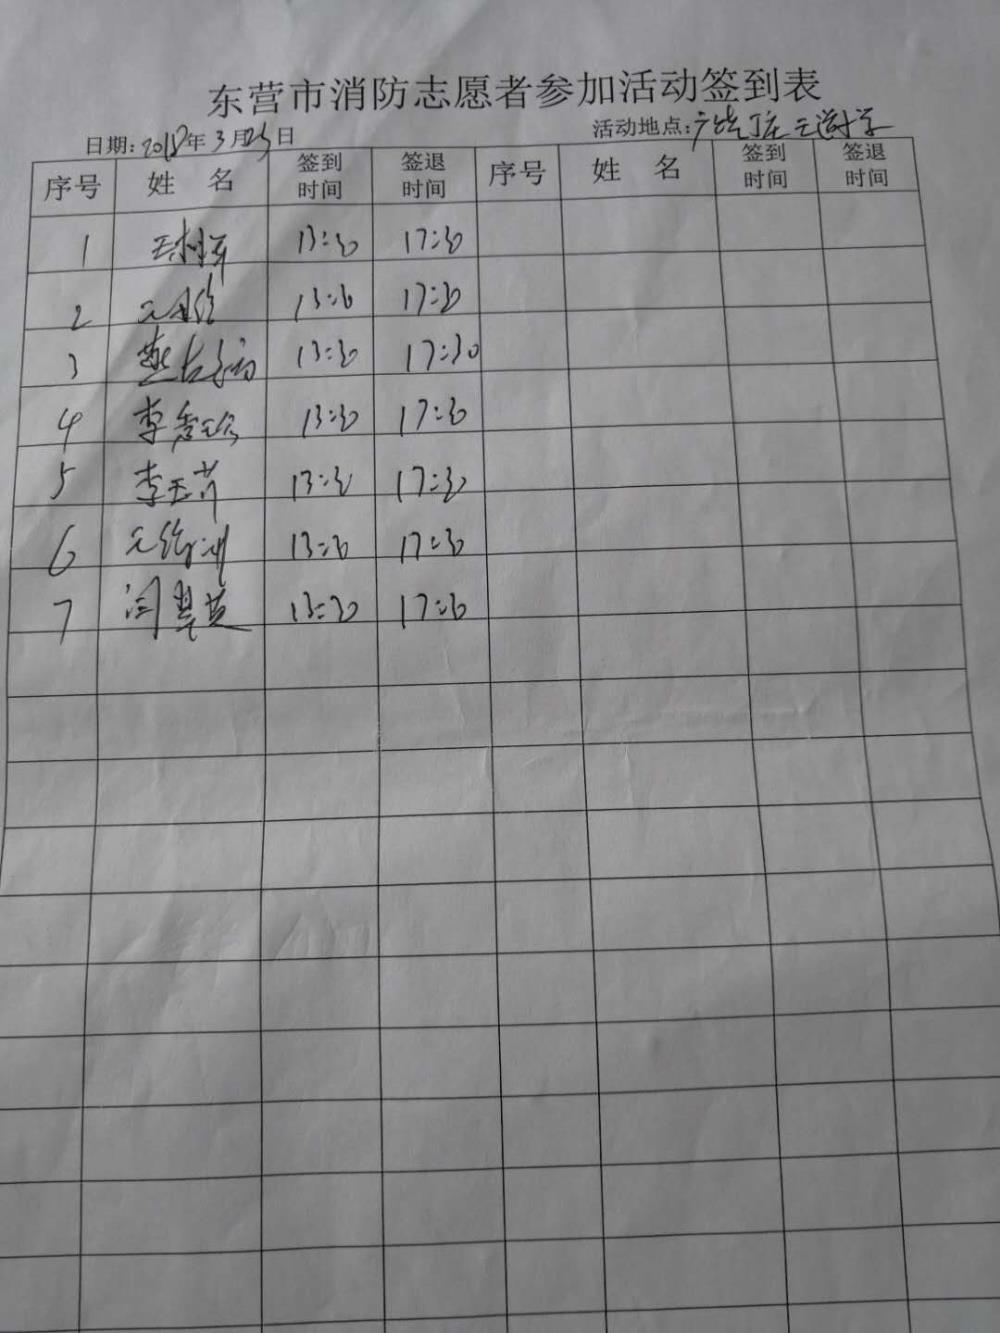 东营市消防志愿者参加活动签到表
日期:2018年3月25日 活动地点:广饶丁庄
序号 姓名 签到时间 签退时间 序号 姓名 签到时间 签退时间
1 13:30 17:30
2 13:30 17:30
3 燕 13:30 17:30
4 李秀珍 13:30 17:30
5 李玉芹 13:30 17:30
6 13:30 17:30
7 闫翠英 13:30 17:30